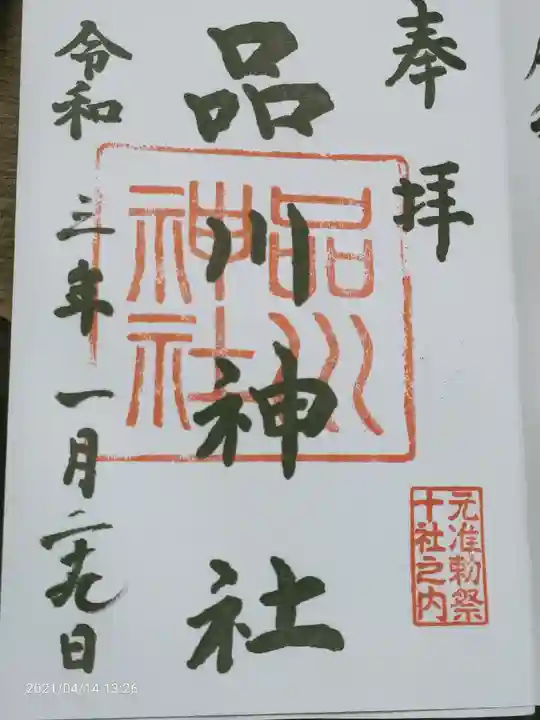 奉拝
品川神社
品川神社
元准勅祭
十社之内
令和三年一月二十九日
2021/04/14 13:26